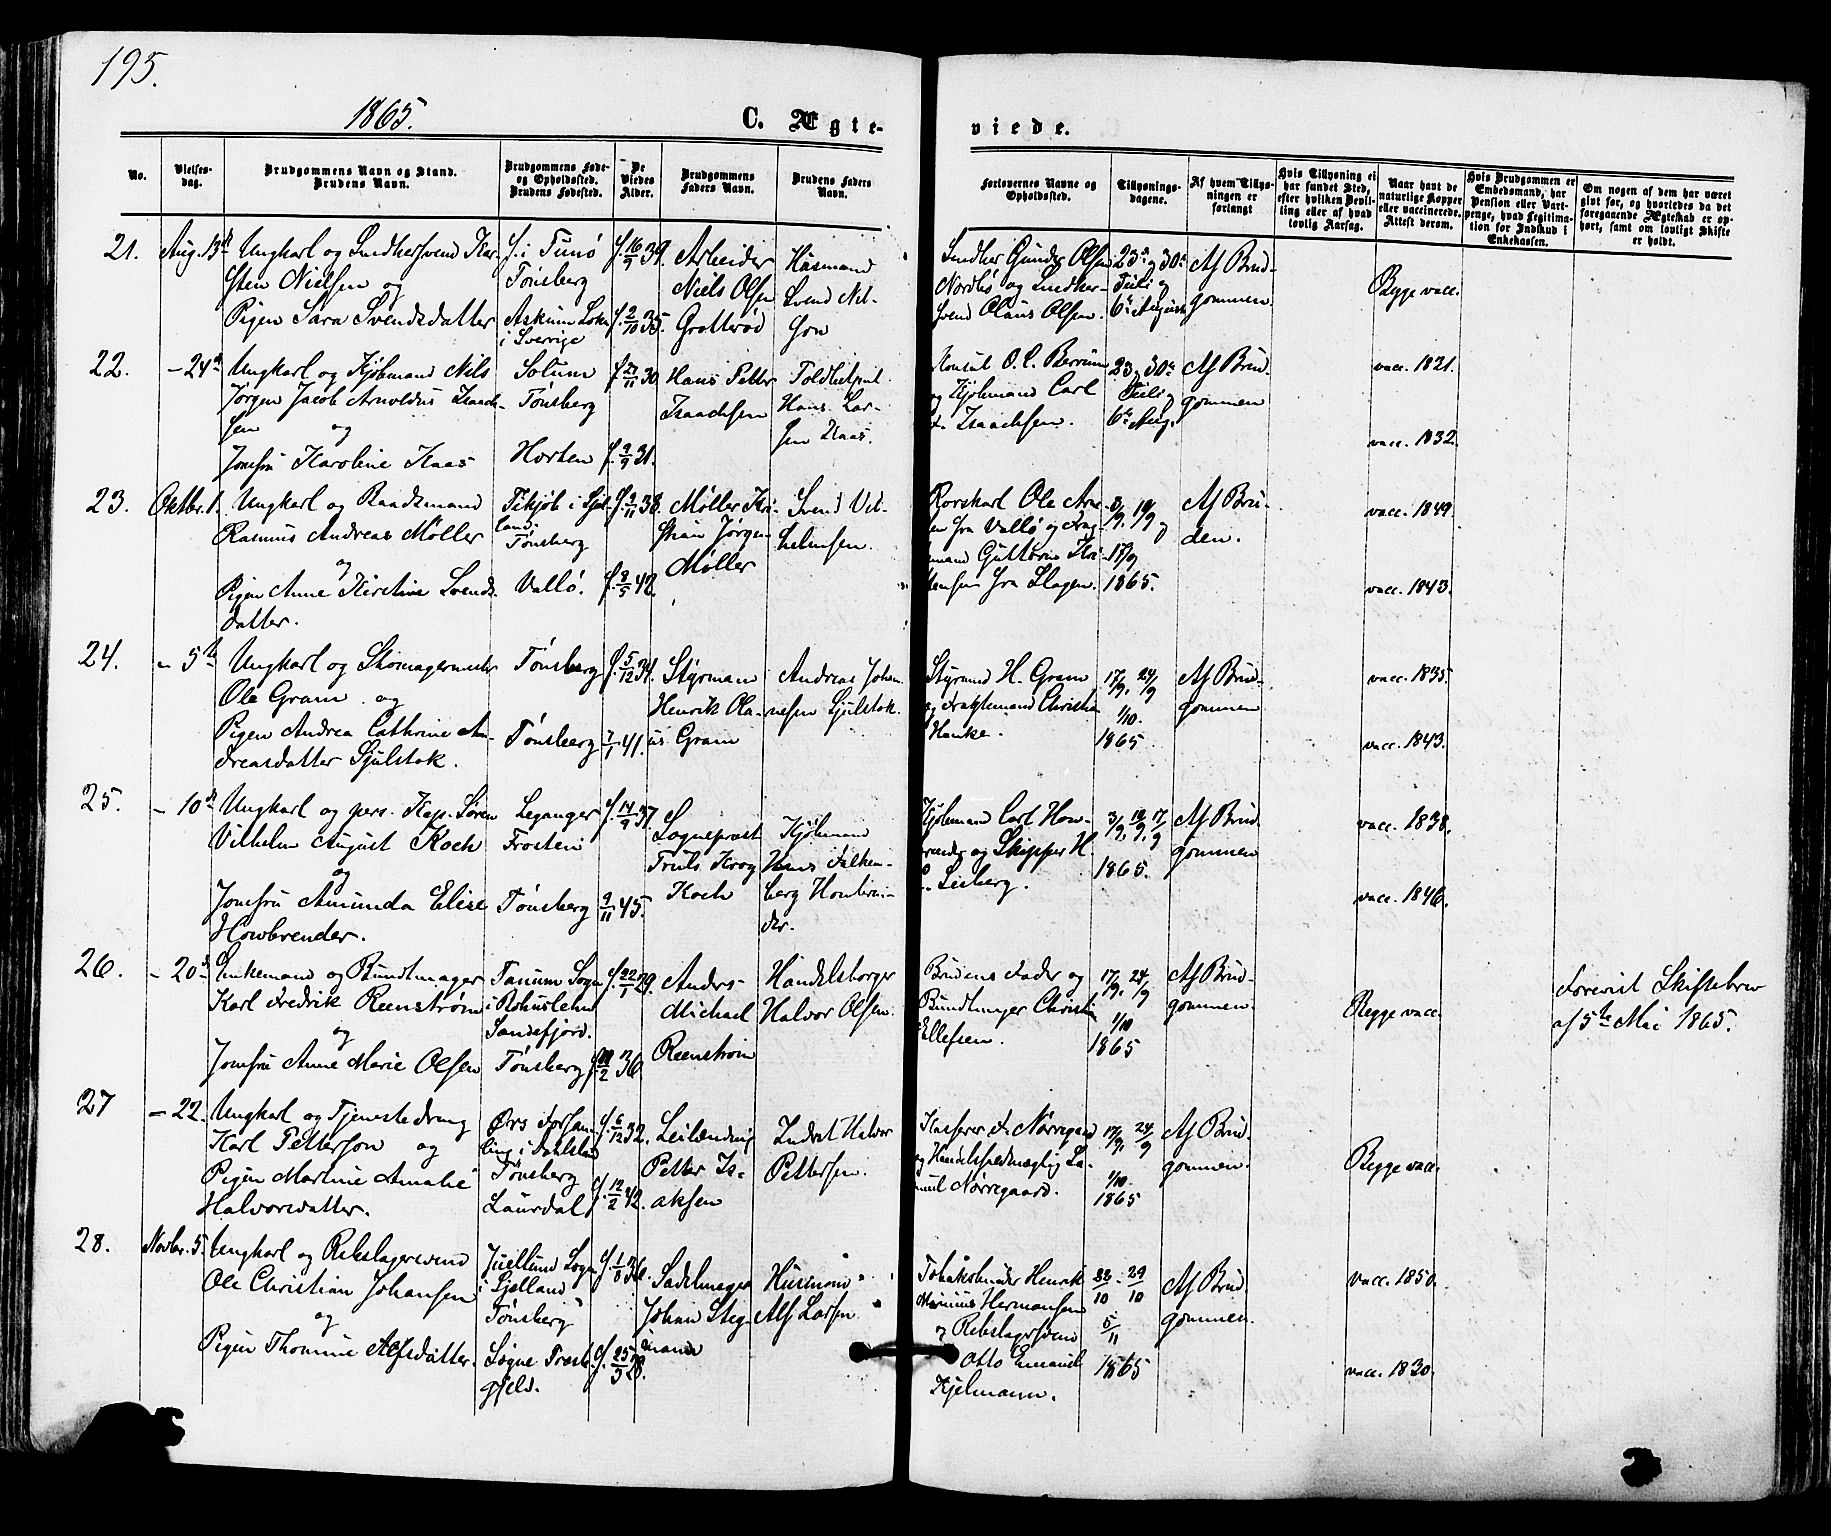 195.
1865.
C. Ægte-
viede.
No.
Vielses-
dag.
Brudgommens Navn og Stand.
Brudens Navn.
Brudgommens Føde-
og Opholdssted.
Brudens Fødested.
De
Viedes
Alder.
Brudgommens
Faders Navn.
Brudens Faders
Navn.
Forlovernes Navne og
Opholdssted.
Tillysnings-
dagene.
Af hvem Tillys-
ningen er
forlangt
Hvis Tillysning ei
har fundet Sted,
efter hvilken Bevil-
ling eller af hvad
lovlig Aarsag.
Naar havt de
naturlige Kopper
eller vaccinerede.
Attest derom.
Hvis Brudgommen er
Embedsmand, har
Pension eller Vart-
penge, hvad Legitima-
tion for Indskud i
Enkekassen.
Om nogen af dem har været
givt før, og hvorledes da det
foregaaende Ægteskab er op-
hørt, samt om lovligt Skifte
er holdt.
21.
Aug. 13de
Ungkarl og Smedkersvend Kar-
sten Nielsen og
Pigen Sara Svendsdatter
f. i
Tønsberg
i Sverige
f. 16/9 39.
f. 2/10 35.
Arbeider
Niels Olsen
Grotterød
Husmand
Svend Nil-
son
Gunder Olsen
Nordbö og
svend Claus Olsen.
23de, 30te
Juli og
6te August
Af Brud-
gommen.
Begge vacc.
22.
– 24de
Ungkarl og Kjøbmand Nils
Jørgen Jacob Arnoldus Isaach-
sen
og
Jomfru Karoline Kaas
Solum
Tønsberg
Horten
f. 21/11 30.
f. 9/9 31.
Hans Petter
Isaachsen
Hans Lar-
sen Kaas.
Konsul O. C. Berrum
og Kjøbmand Carl
Isaachsen.
23, 30te
Juli og
6te Aug.
Af Brud-
gommen
vacc. 1821.
vacc. 1832.
23.
Oktbr. 1.
Ungkarl og Baadsmand
Rasmus Andreas Møller
og
Pigen Anne Kirstine Svends-
datter.
Tikjøb i Sjæl-
land.
Tønsberg
Vallö.
f. 9/11 38.
f. 8/5 42.
Møller Kri-
stian Jørgen
Møller
Svend Vil-
helmsen.
Rorskarl Ole
fra Vallö og Frag-
mand Guttorm Kri-
stensen fra Slagen.
3/9, 10/9 og
17/9
1865.
Af Bru-
den.
vacc. 1849.
vacc. 1843.
24.
– 5te
Ungkarl og Skomagermester
Ole Gram og
Pigen Andrea Cathrine An-
dreasdatter Sjulstok.
Tønsberg
Tønsberg
f. 5/12 34.
7/1 41.
Styrmand
Henrik Ola-
us Gram
Andreas Johan-
nesen Sjulstok.
Styrmand H. Gram
og Fragtemand Christian
Hanke.
17/9, 24/9
1/10.
1865
Af Brud-
gommen
vacc. 1835.
vacc. 1843.
25.
– 10de
Ungkarl og pers. Kap. Søren
Vilhelm August Koch
og
Jomfru Amunda Elise
Howbrender.
Leganger
Frosten
Tønsberg
f. 14/9 37.
9/11 45.
Sogneprest
Truls Krog
Koch
Kjøbmand
Hans Falken-
berg Howbren-
der.
Kjøbmand Carl How-
brender og Skipper H.
Lieberg.
3/9, 10/9, 17/9
1865.
Af Brud-
gommen
vacc. 1838.
vacc. 1846.
26.
– 20de
Enkemand og Bundtmager
Karl Fredrik Reenstrøm
og
Jomfru Anne Marie Olsen
Tanum Sogn
i Bohuslehn
Sandefjord.
Tønsberg
f. 22/1 29.
36
Anders
Michael
Reenstrøm
Handelsborger
Halvor Olsen.
Brudens Fader og
Bundtmager Christian
Ellefsen.
17/9, 24/9
1/10
1865
Af Brud-
gommen.
Begge vacc.
Forevist Skiftebrev
af 5te Mai 1865.
27
– 22.
Ungkarl og Tjenestedreng
Karl Petterson og
Pigen Martine Amalie
Halvorsdatter.
Ørs Forsam-
ling i Dahlsland
Tønsberg
Laurdal
f. 6/12 32.
f. 12/2 42.
Leilænding
Petter Is-
aksen
Inderst Halvor
Pettersen.
Kasserer F. Nørregaard
og Handelsfuldmægtig
Nørregaard.
17/9, 24/9
1/10.
1865
Af Brud-
gommen.
Begge vacc.
28.
Novbr. 5.
Ungkarl og Rebslagersvend
Ole Christian Johansen
og
Pigen Thomine Alfsdatter.
Juellund Sogn
i Sjelland
Tønsberg
Sogne Præste-
gjeld.
f. 1/8 36.
f. 25/5 28.
Sadelmager
Johan Stig-
mand
Husmand
Alf Larsen
Henrik
Marinius Hermansen
og Rebslagersvend
Otto Emanuel
Kjelmann.
22/10 – 29/10
5/11
1865
Af Brud-
gommen.
vacc. 1850.
vacc. 1830.